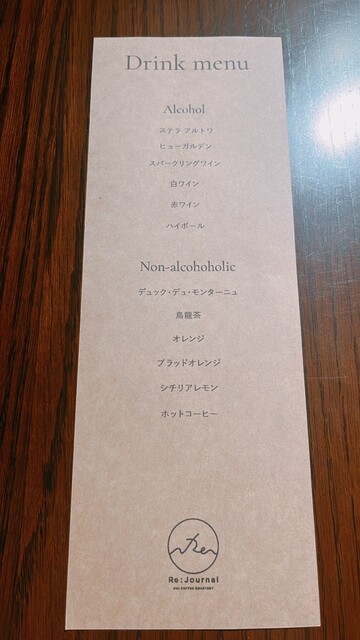 Drink menu
Alcohol
ステラ アルトワ
ヒューガルデン
スパークリングワイン
白ワイン
赤ワイン
ハイボール
Non-alcohoholic
デュック・デュ・モンターニュ
烏龍茶
オレンジ
ブラッドオレンジ
シチリアレモン
ホットコーヒー
Re
Re:Journal
COFFEE ROASTERY